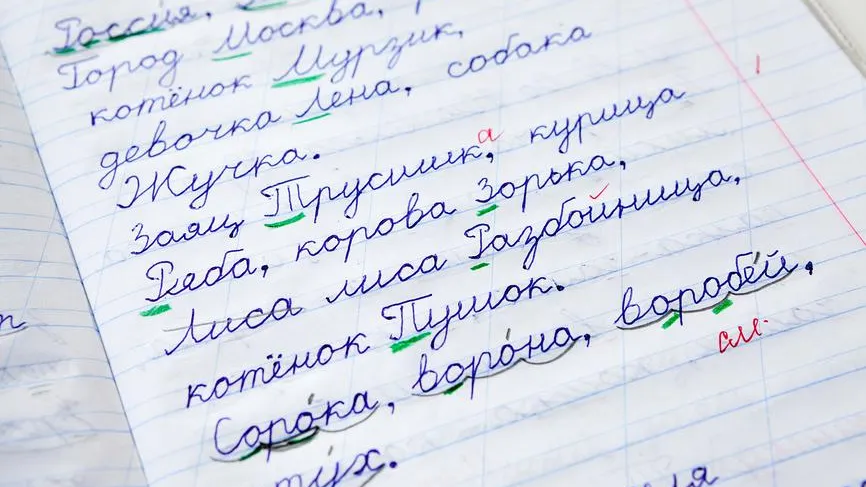 Россия,
Город Москва,
котёнок Мурзик,
девочка Лена, собака
Жучка.
Заяц Трусишка, курица
Ряба, корова Зорька,
Лиса лиса Разбойница,
котёнок Пушок.
Соро́ка, воро́на, воробе́й,
см.